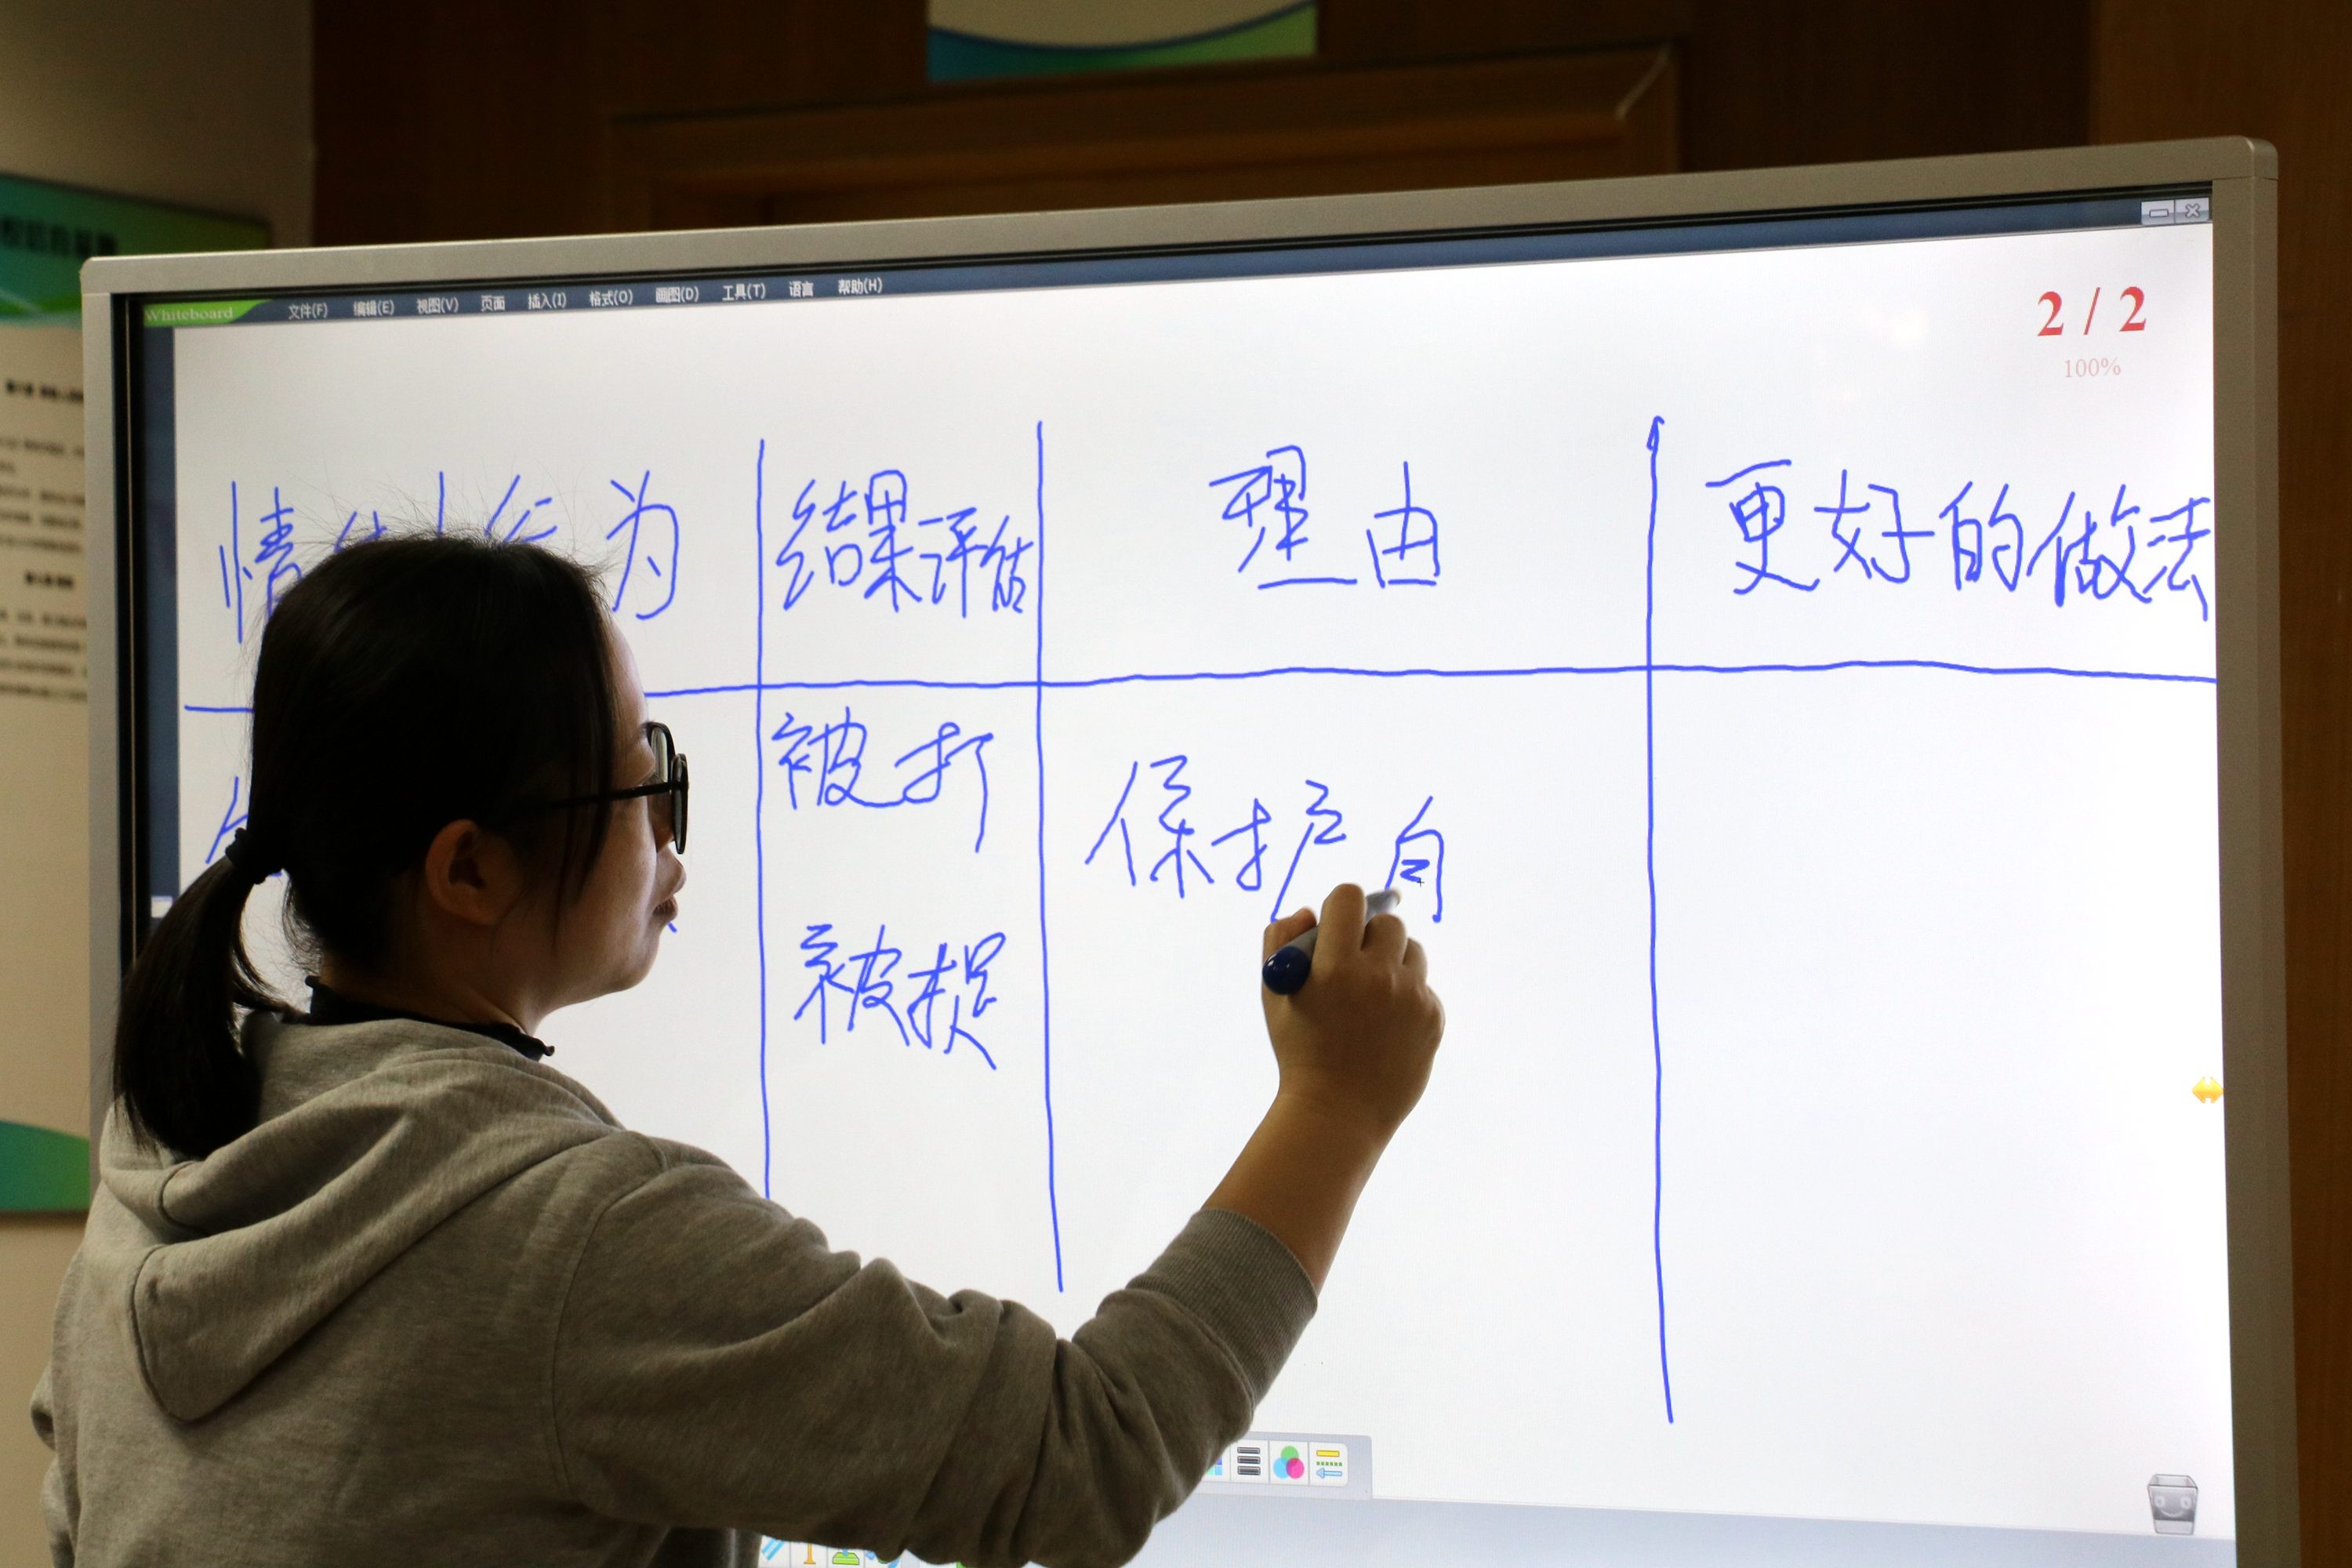 Whiteboard 文件(F) 编辑(E) 视图(V) 页面 插入(I) 格式(O) 画图(D) 工具(T) 语言 帮助(H)
2 / 2
100%
情 行为 结果评估 理由 更好的做法
被打
保护自
被捉